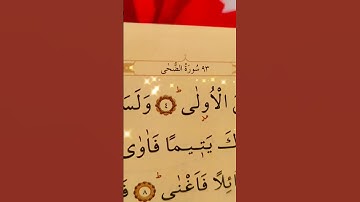 ٩٣ سُورَةُ الضُّحٰى
الْاُوْلٰى ۝٤ وَلَسَ
كَ يَتِيْمًا فَاٰوٰى
ئِلًا فَاَغْنٰى ۝٨ فَ